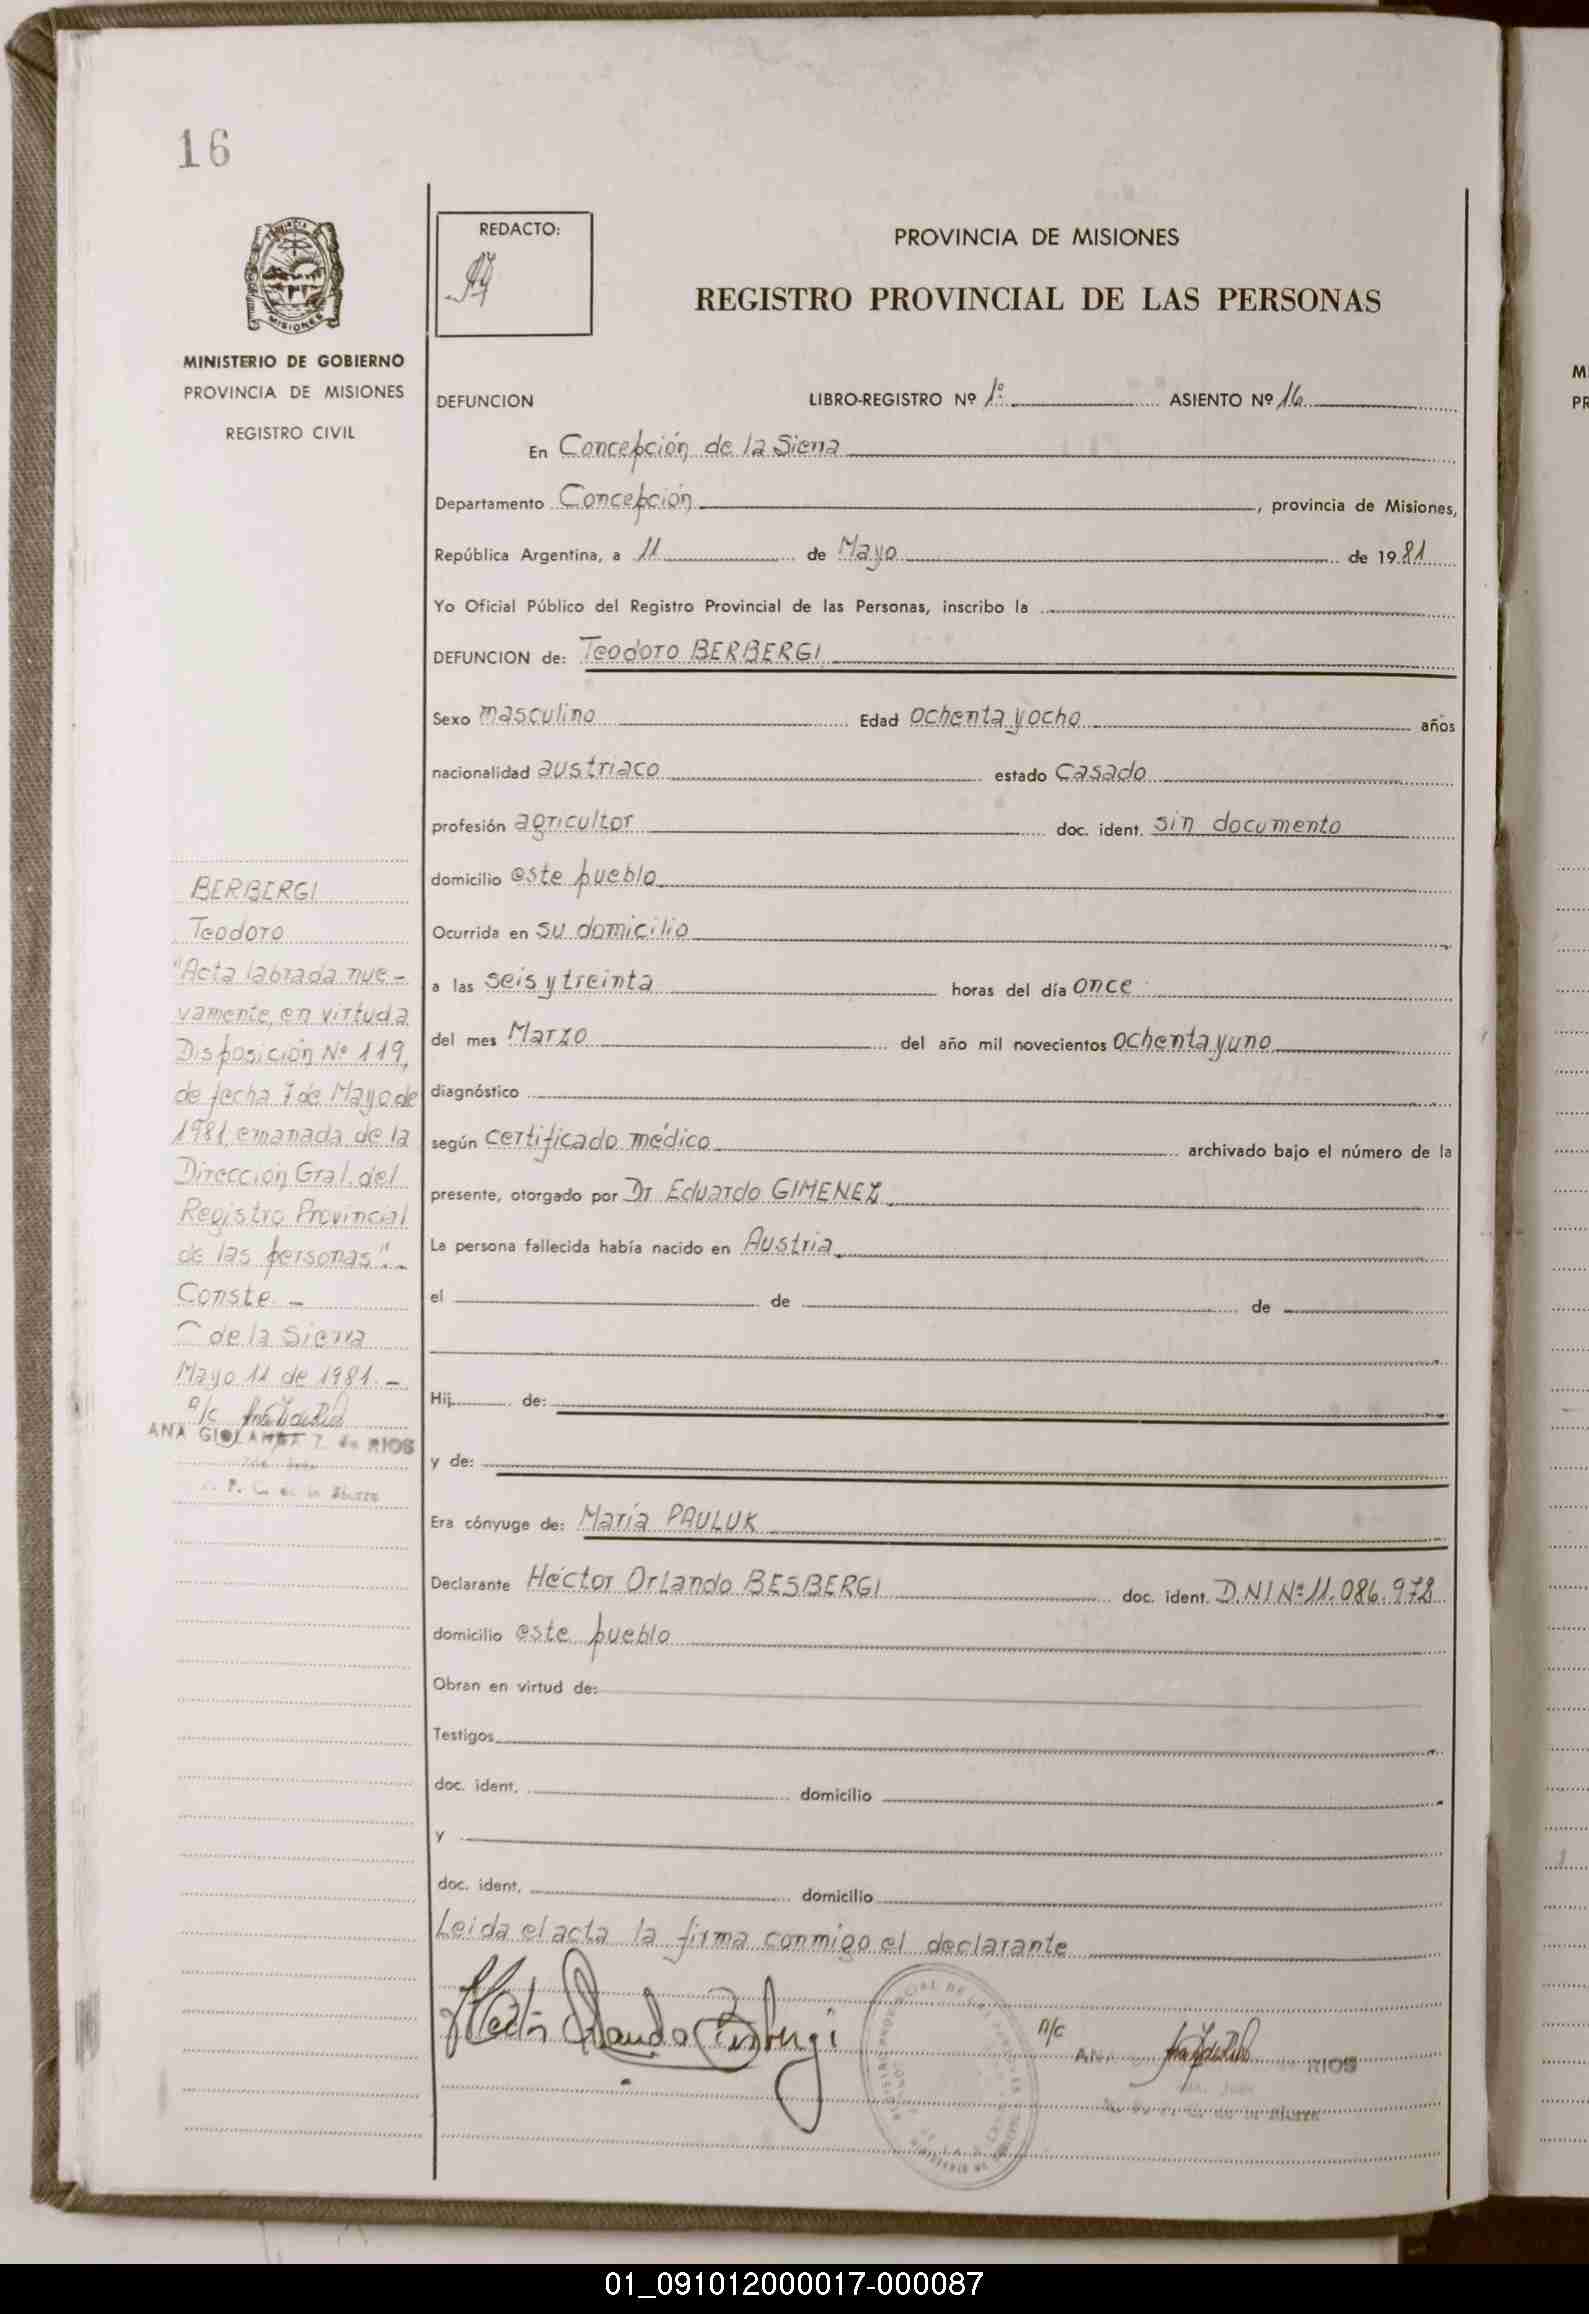 16
PROVINCIA
MISIONES
MINISTERIO DE GOBIERNO
PROVINCIA DE MISIONES
REGISTRO CIVIL
REDACTO:
PROVINCIA DE MISIONES
REGISTRO PROVINCIAL DE LAS PERSONAS
DEFUNCION LIBRO-REGISTRO Nº 1º ASIENTO Nº 16
En Concepción de la Sierra
Departamento Concepción, provincia de Misiones,
República Argentina, a 11 de Mayo de 1981
Yo Oficial Público del Registro Provincial de las Personas, inscribo la
DEFUNCION de: Teodoro BERBERGI
Sexo masculino Edad ochenta y ocho años
nacionalidad austriaco estado casado
profesión agricultor doc. ident. sin documento
domicilio este pueblo
Ocurrida en su domicilio
a las seis y treinta horas del día once
del mes Marzo del año mil novecientos ochenta y uno
diagnóstico
según certificado médico archivado bajo el número de la
presente, otorgado por Dr Eduardo GIMENEZ
La persona fallecida había nacido en Austria
el de de
Hij de:
y de:
Era cónyuge de: María PAULUK
Declarante Héctor Orlando BESBERGI doc. ident. D.N.I Nº 11.086.972
domicilio este pueblo
Obran en virtud de:
Testigos
doc. ident. domicilio
y
doc. ident. domicilio
Leida el acta la firma conmigo el declarante
Héctor Orlando Besbergi
a/c
ANA RIOS
BERBERGI
Teodoro
"Acta labrada nue-
vamente, en virtud a
Disposición Nº 119,
de fecha 7 de Mayo de
1981 emanada de la
Dirección Gral. del
Registro Provincial
de las personas".-
Conste.-
C de la Sierra
Mayo 11 de 1981.-
a/c
ANA RIOS
M
PR
01_091012000017-000087